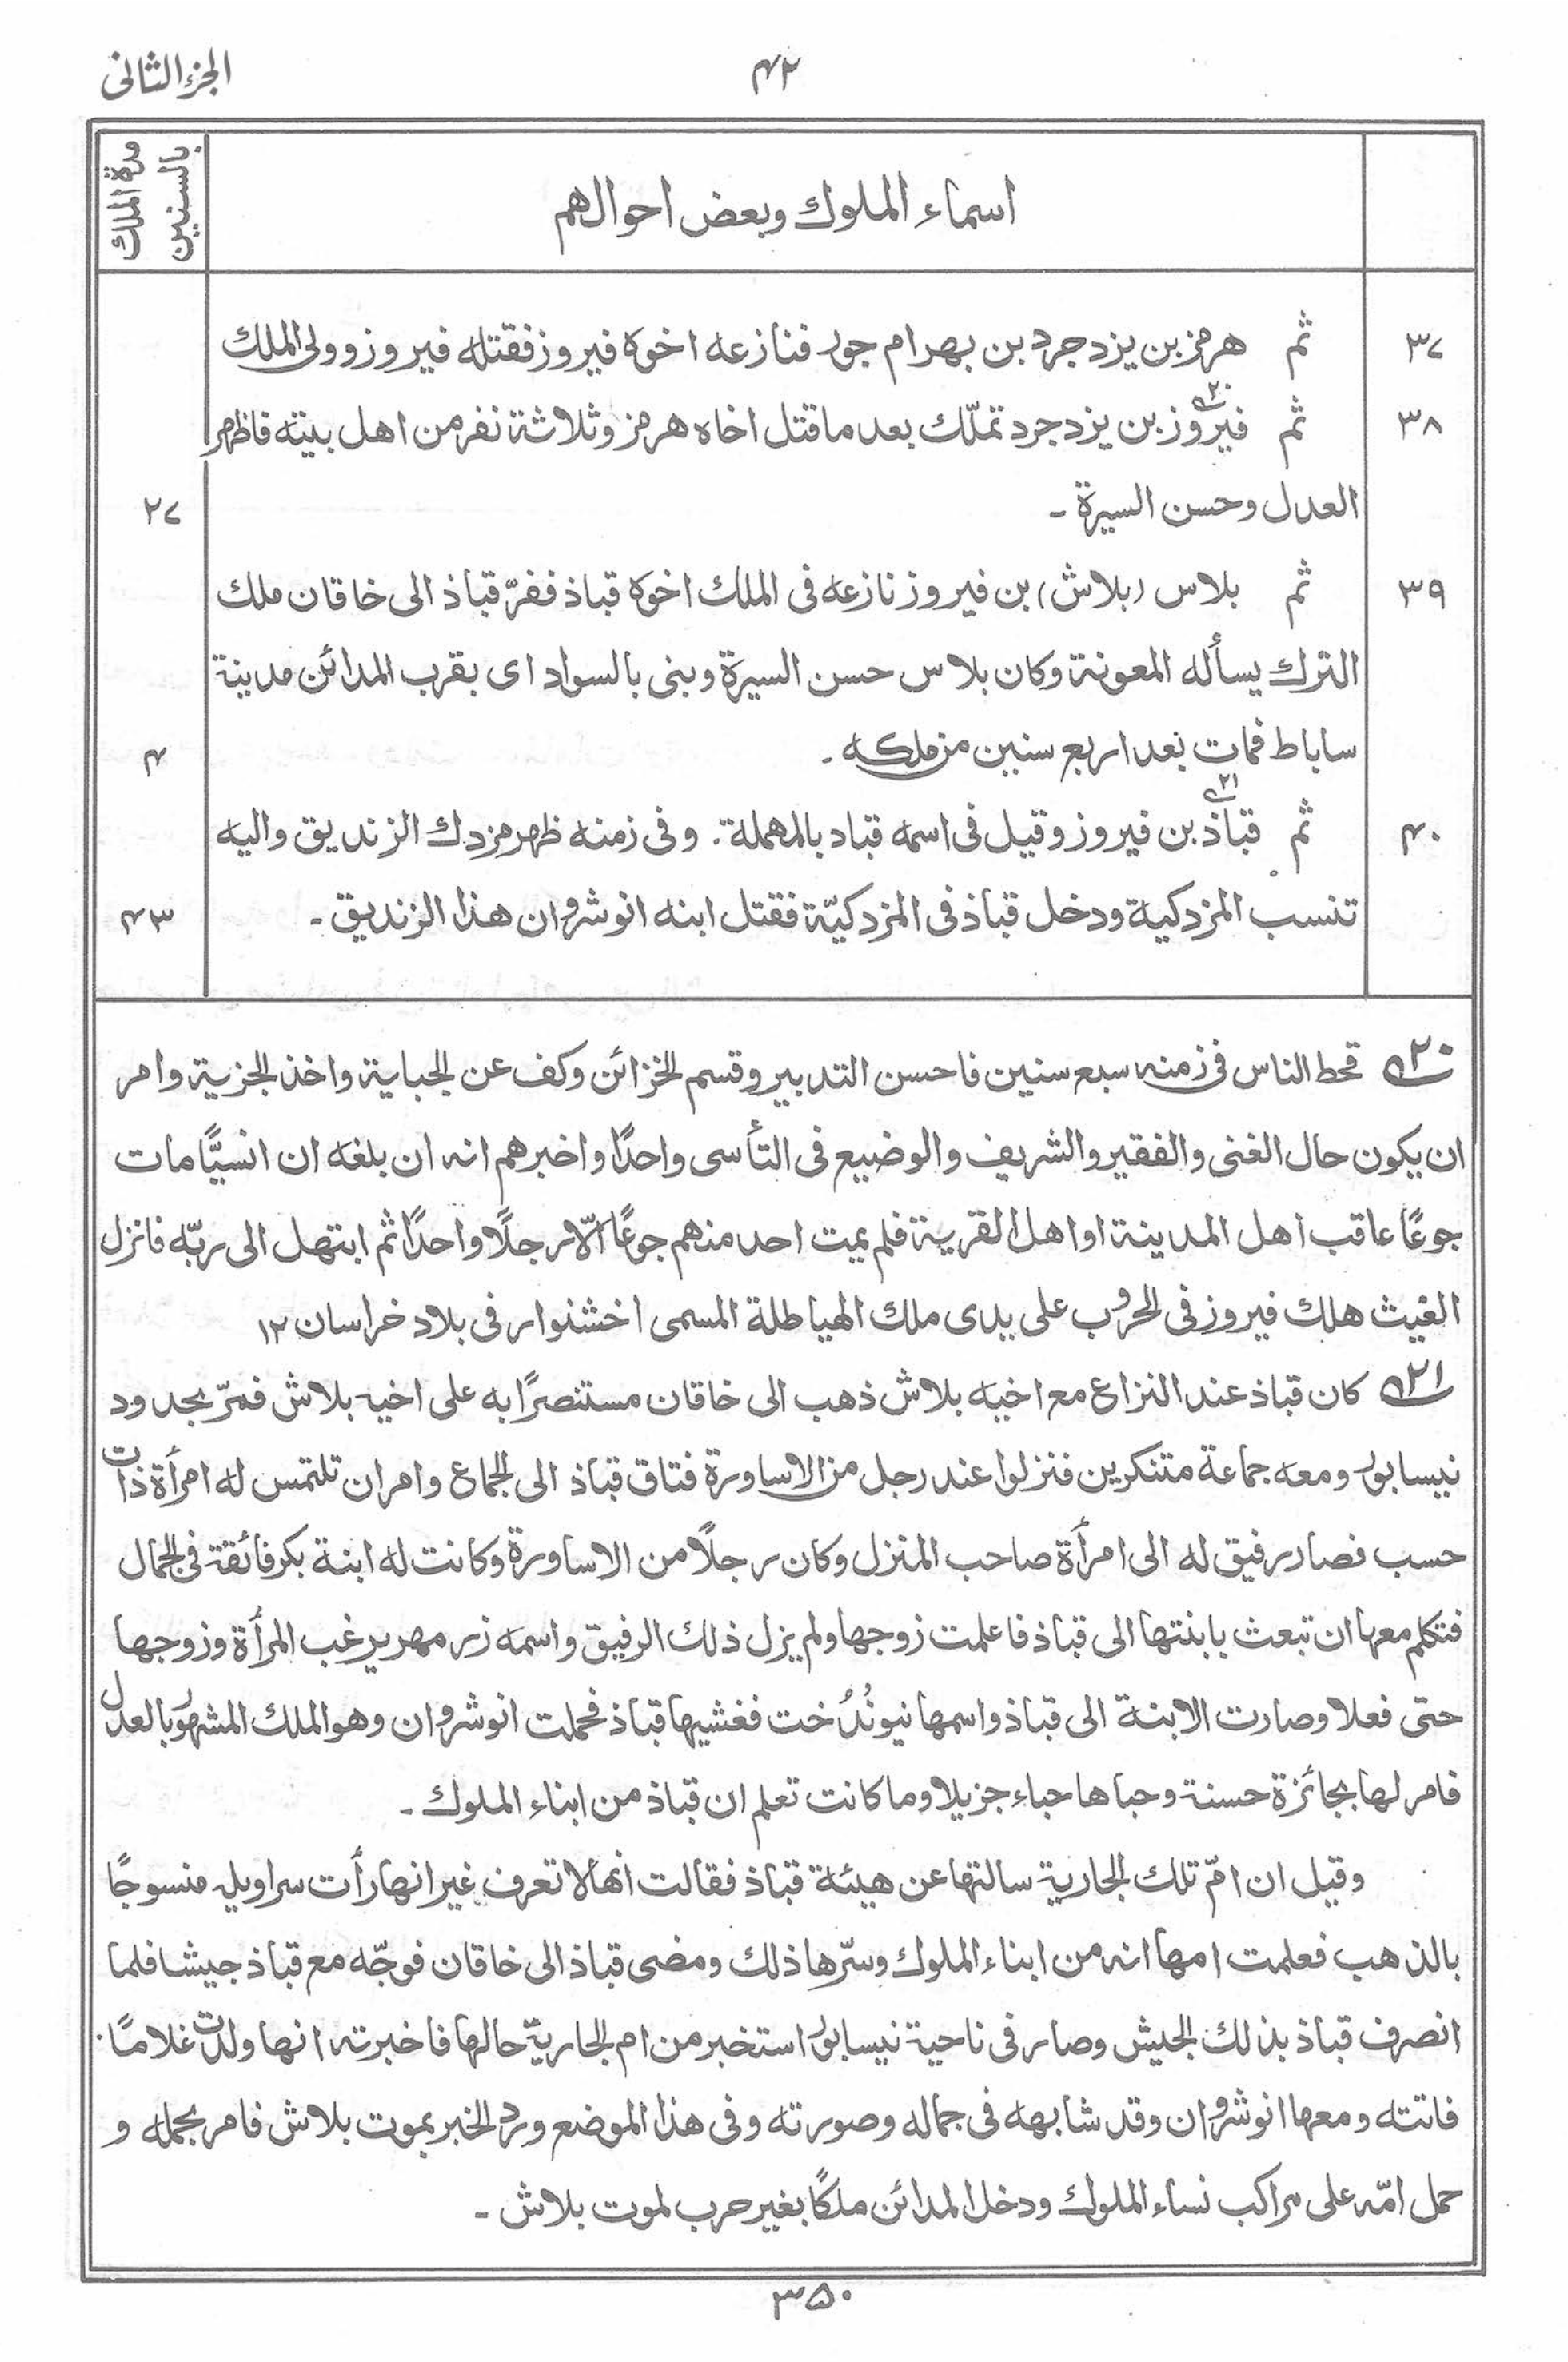 الجزء الثانی
۴۲
اسماء الملوك وبعض احوالهم
مدة الملك بالسنين
۳۷ ثم هرمز بن يزدجرد بن بهرام جور فنازعه اخوه فيروز فقتله فيروز وولی الملك
۳۸ ثم فيروز۲۰ بن يزدجرد تملّك بعد ما قتل اخاه هرمز وثلاثة نفر من اهل بيته فاظهر
العدل وحسن السيرة - ۲۷
۳۹ ثم بلاس (بلاش) بن فيروز نازعه فی الملك اخوه قباذ ففرّ قباذ الی خاقان ملك
الترك يسأله المعونة وكان بلاس حسن السيرة وبنی بالسواد ای بقرب المدائن مدينة
ساباط فمات بعد اربع سنين من ملكه - ۴
۴۰ ثم قباذ۲۱ بن فيروز وقيل فی اسمه قباد بالمهملة. وفی زمنه ظهر مزدك الزنديق واليه
تنسب المزدكية ودخل قباذ فی المزدكيّة فقتل ابنه انوشروان هذا الزنديق - ۴۳
۲۰ قحط الناس فی زمنه سبع سنين فاحسن التدبير وقسم الخزائن وكف عن الجباية واخذ الجزية وامر
ان يكون حال الغنی والفقير والشريف والوضيع فی التأسی واحدًا واخبرهم انه ان بلغه ان انسيًّا مات
جوعًا عاقب اهل المدينة او اهل القرية فلم يمت احد منهم جوعًا الّا رجلًا واحدًا ثم ابتهل الی ربّه فانزل
الغيث هلك فيروز فی الحروب علی يدی ملك الهياطلة المسمی اخشنوار فی بلاد خراسان ۱۲
۲۱ كان قباذ عند النزاع مع اخيه بلاش ذهب الی خاقان مستنصرًا به علی اخيه بلاش فمرّ بحدود
نيسابور ومعه جماعة متنكرين فنزلوا عند رجل من الاساورة فتاق قباذ الی الجماع وامر ان تلتمس له امرأة ذات
حسب فصار رفيق له الی امرأة صاحب المنزل وكان رجلًا من الاساورة وكانت له ابنة بكر فائقة فی الجمال
فتكلم معها ان تبعث بابنتها الی قباذ فاعلمت زوجها ولم يزل ذلك الرفيق واسمه زرمهر يرغب المرأة وزوجها
حتی فعلا وصارت الابنة الی قباذ واسمها نيونُدُخت فغشيها قباذ فحملت انوشروان وهو الملك المشهور بالعدل
فامر لها بجائزة حسنة وحباها حباء جزيلا وما كانت تعلم ان قباذ من ابناء الملوك -
وقيل ان امّ تلك الجارية سالتها عن هيئة قباذ فقالت انها لا تعرف غير انها رأت سراويله منسوجًا
بالذهب فعلمت امها انه من ابناء الملوك وسرّها ذلك ومضی قباذ الی خاقان فوجّه مع قباذ جيشا فلما
انصرف قباذ بذلك الجيش وصار فی ناحية نيسابور استخبر من ام الجارية حالها فاخبرته انها ولدت غلامًا
فاتته ومعها انوشروان وقد شابهه فی جماله وصورته وفی هذا الموضع ورد الخبر بموت بلاش فامر بحمله و
حمل امّه علی مراكب نساء الملوك ودخل المدائن ملكًا بغير حرب لموت بلاش -
۳۵۰